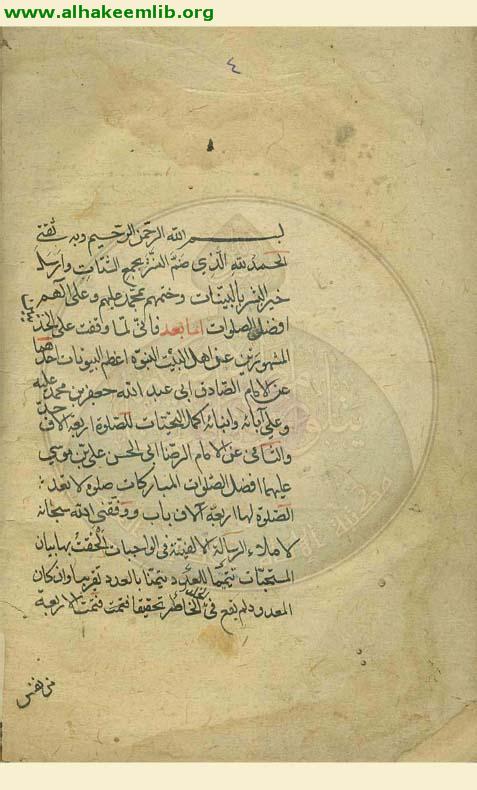 www.alhakeemlib.org
٤
بسم الله الرحمن الرحيم وبه ثقتي
الحمد لله الذي ضم النشر بجمع الشتات وارسل
خير البشر بالبينات وختمهم بمحمد عليهم وعلى آلهم
افضل الصلوات اما بعد فاني لما وقفت على الحد
المشهورين عن اهل البيت النبوة اعظم البيوتات احدهما
عن الامام الصادق ابى عبد الله جعفر بن محمد عليه
وعلى آبائه وابنائه اكمل التحيات للصلوة اربعة الاف حد
والثانى عن الامام الرضا ابى الحسن على بن موسى
عليهما افضل الصلوات المباركات صلوة لا تعد
الصلوة لها اربعة آلاف باب ووفقنى الله سبحانه
لاملاء الرسالة الالفية فى الواجبات الحقت بها بيان
المستحبات تتميما للعدد تقريبا وان كان
المعدود لم يقع فى الخاطر تحقيقا فتمت الاربعة
من نفس